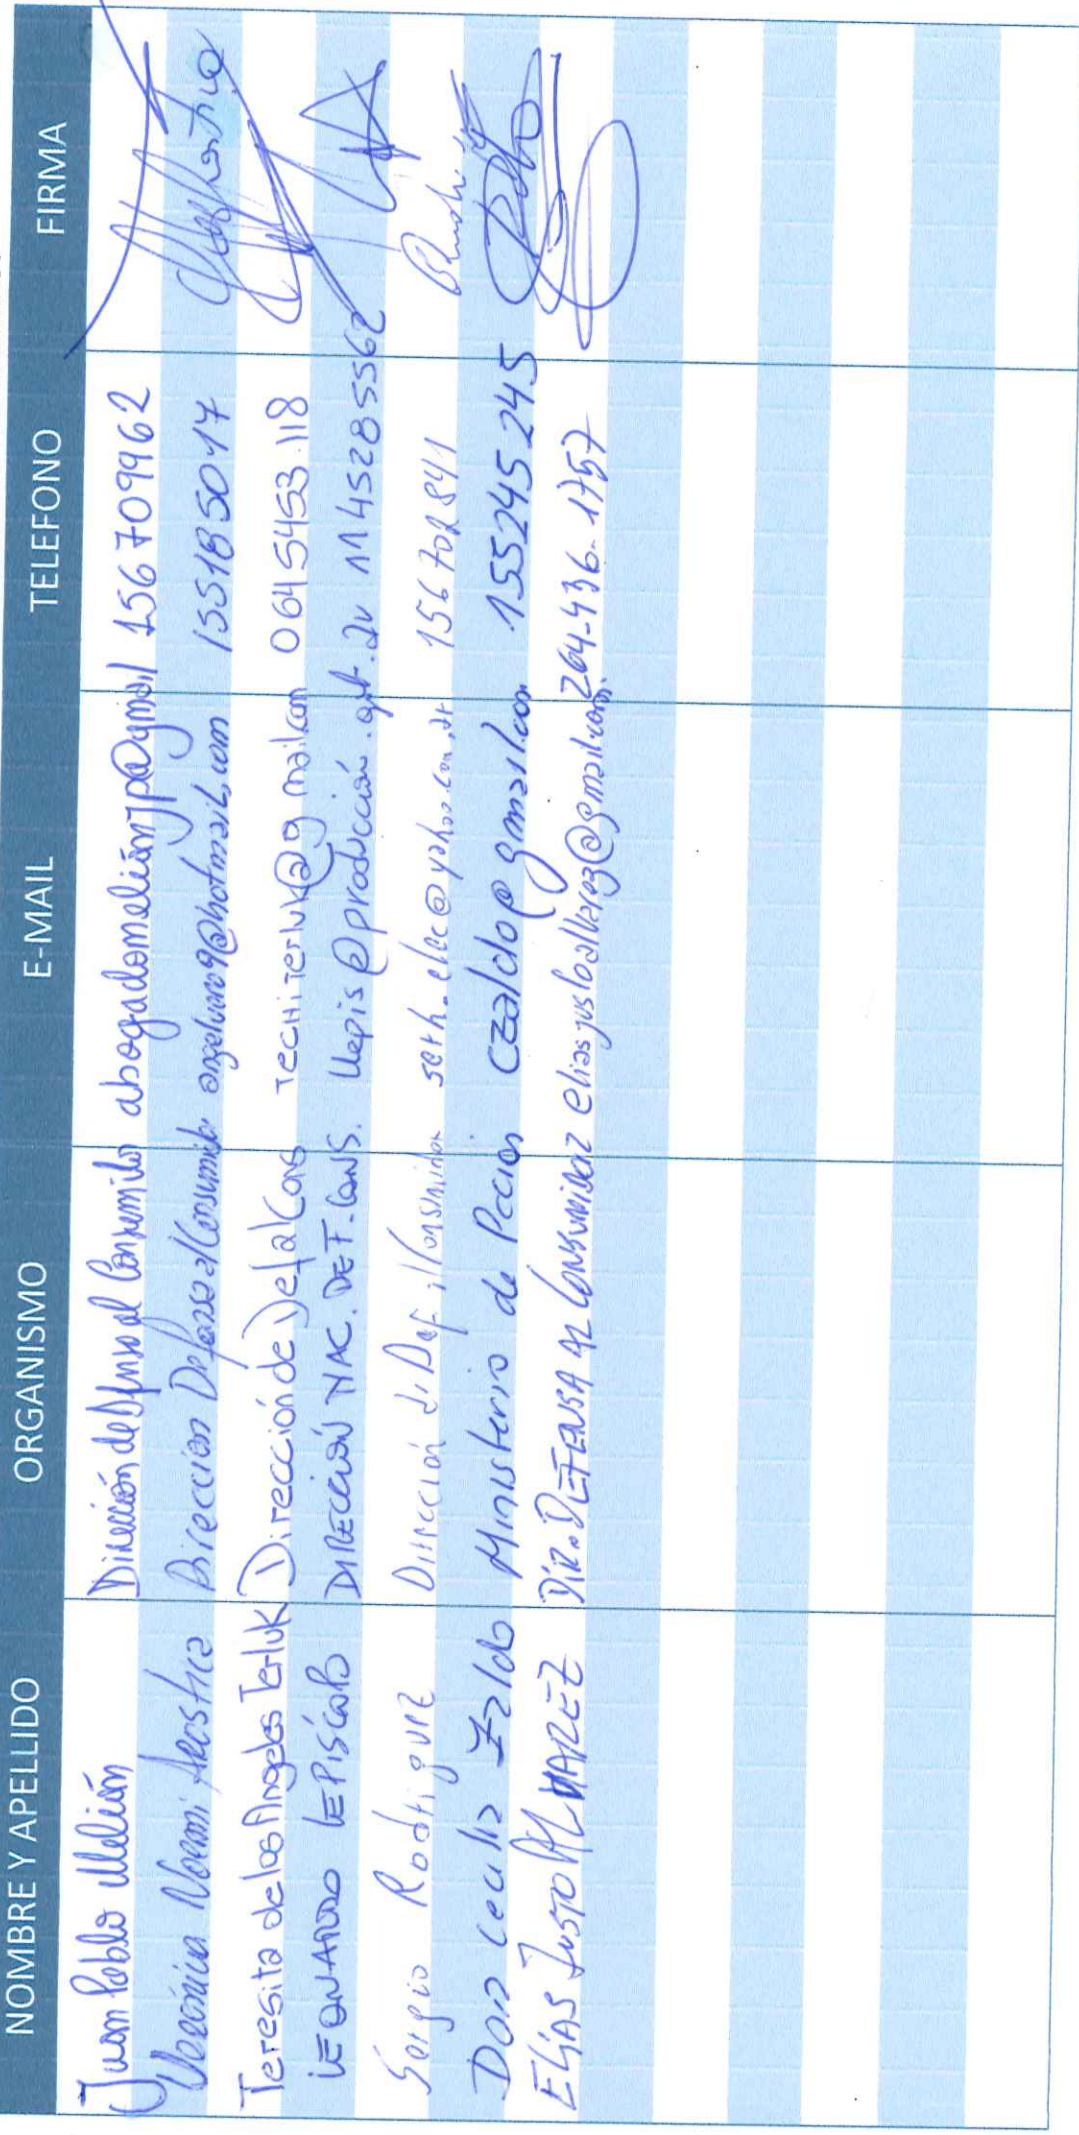 NOMBRE Y APELLIDO ORGANISMO E-MAIL TELEFONO FIRMA
Juan Pablo Melián Dirección de Defensa al Consumidor abogadomelianjp@gmail 156709962
Verónica Noemi Arostica Direccion Defensa al Consumidor 155185017
Teresita de los Angeles Terluk Dirección de Def al Cons techiterluk@gmail.com 0645453118
LEONARDO LEPISCOPO DIRECCIÓN NAC. DEF. CONS. llepis@producción.gob.ar 1145285562
Sergio Rodriguez Dirección de Def. al Consumidor serh_elec@yahoo.com.ar 156702841
Dora Cecilia Zaldo Ministerio de Pccion czaldo@gmail.com 155245245
ELÍAS JUSTO ALVAREZ DIR. DEFENSA AL CONSUMIDOR eliasjustoalvarez@gmail.com 264-436-1757